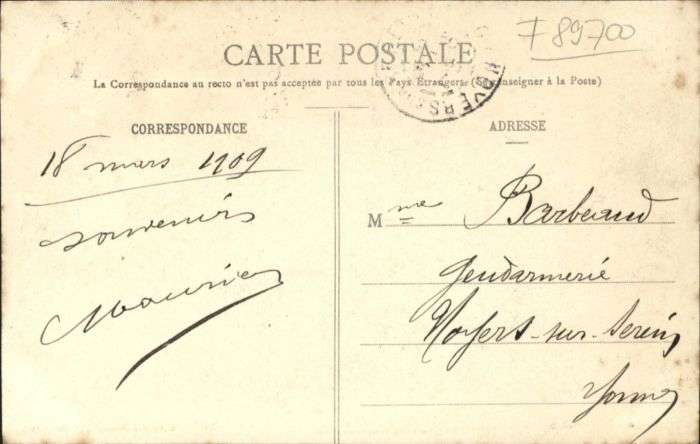 F 89700
CARTE POSTALE
La Correspondance au recto n'est pas acceptée par tous les Pays Étrangers (Se renseigner à la Poste)
CORRESPONDANCE
18 mars 1909
souvenirs
Maurice
ADRESSE
Mme Barbeaud
Gendarmerie
Noyers-sur-Serein
Yonne